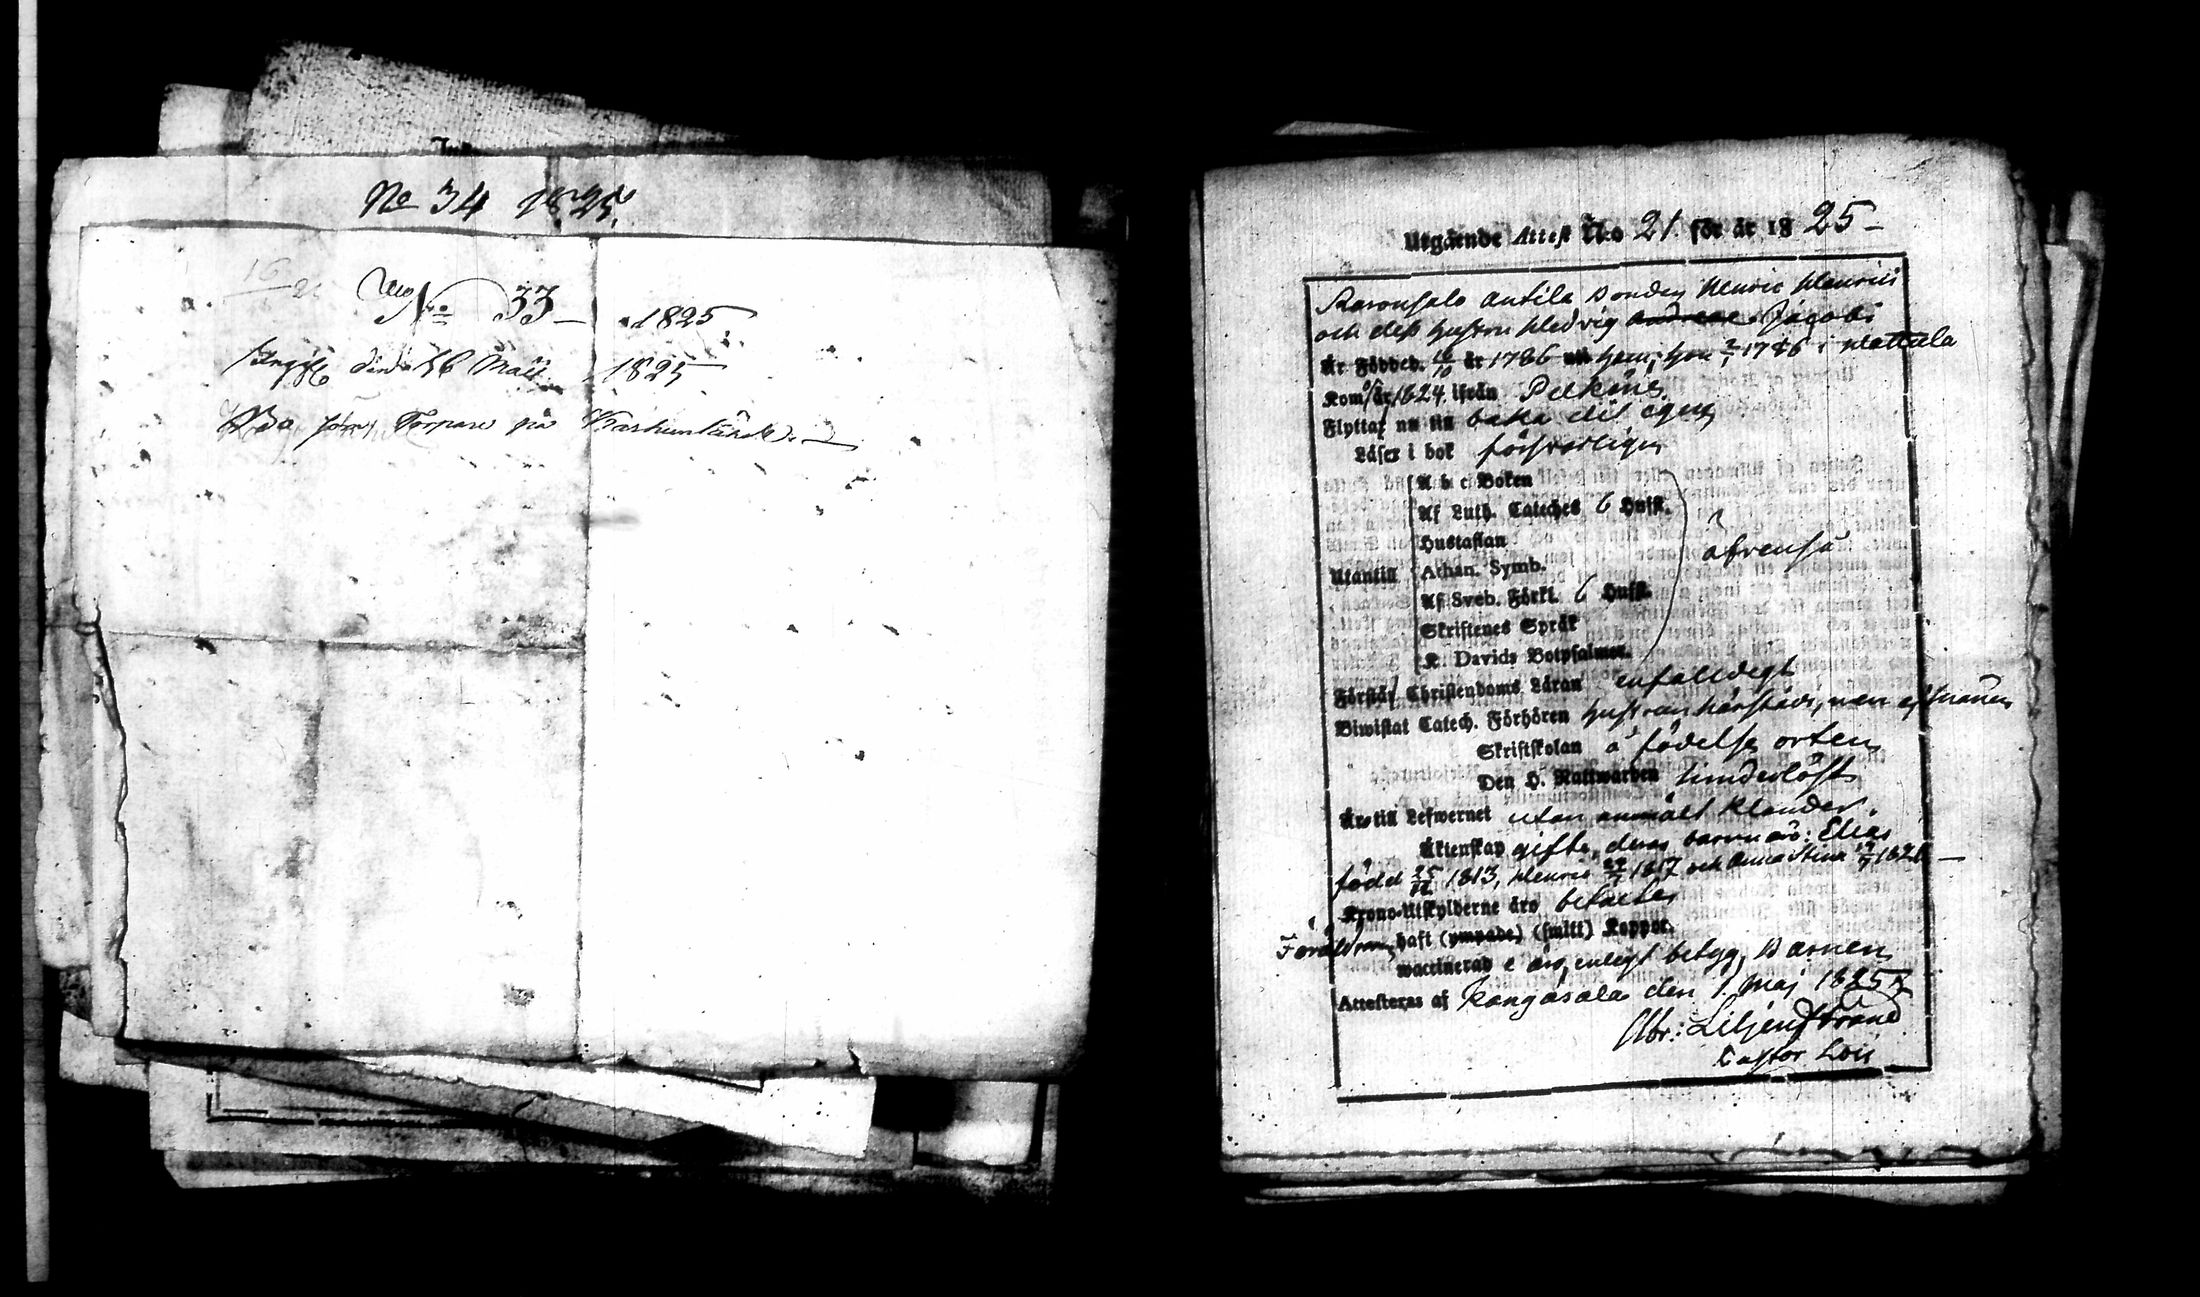 No 34 1825.
No 33 1825
den 16 Maii 1825
Torpare på
Utgående Attest N:o 21 för år 1825
Bonden Henric Henrici
och dess hustru Hedvig Jacobi
Är Född d. 16/10 år 1786 hon 1786 i Mattula
Kom år 1824 ifrån Pelkäne
Flyttar nu till baka dit egen
Läser i bok försvarligen
A b c Boken
Af Luth. Cateches 6 Hufst.
Hustaflan
Utantill Athan. Symb. äfvenså
Af Sveb. Förkl. 6 Hufst.
Skriftenes Språk
K. Davids Botpsalmer.
Förstår Christendoms Läran enfaldigt
Biwistat Catech. Förhören hustrun härstädes, men ej mannen
Skriftskolan å födelse orten
Den H. Nattwarden hinderlöst
Äro till Lefwernet utan anmält klander.
Äktenskap gifte, deras barn äro: Elias
född 25/12 1813, Henric 1817 och Anna Stina 1821
Krono-Utskylderne äro betalte
Föräldrarne haft (ympade) (smitt) Koppor.
waccinerade äro, enligt betyg, Barnen
Attesteras af Kangasala den 1. Maj 1825
Abr: Liljenstrand
Pastor Loci